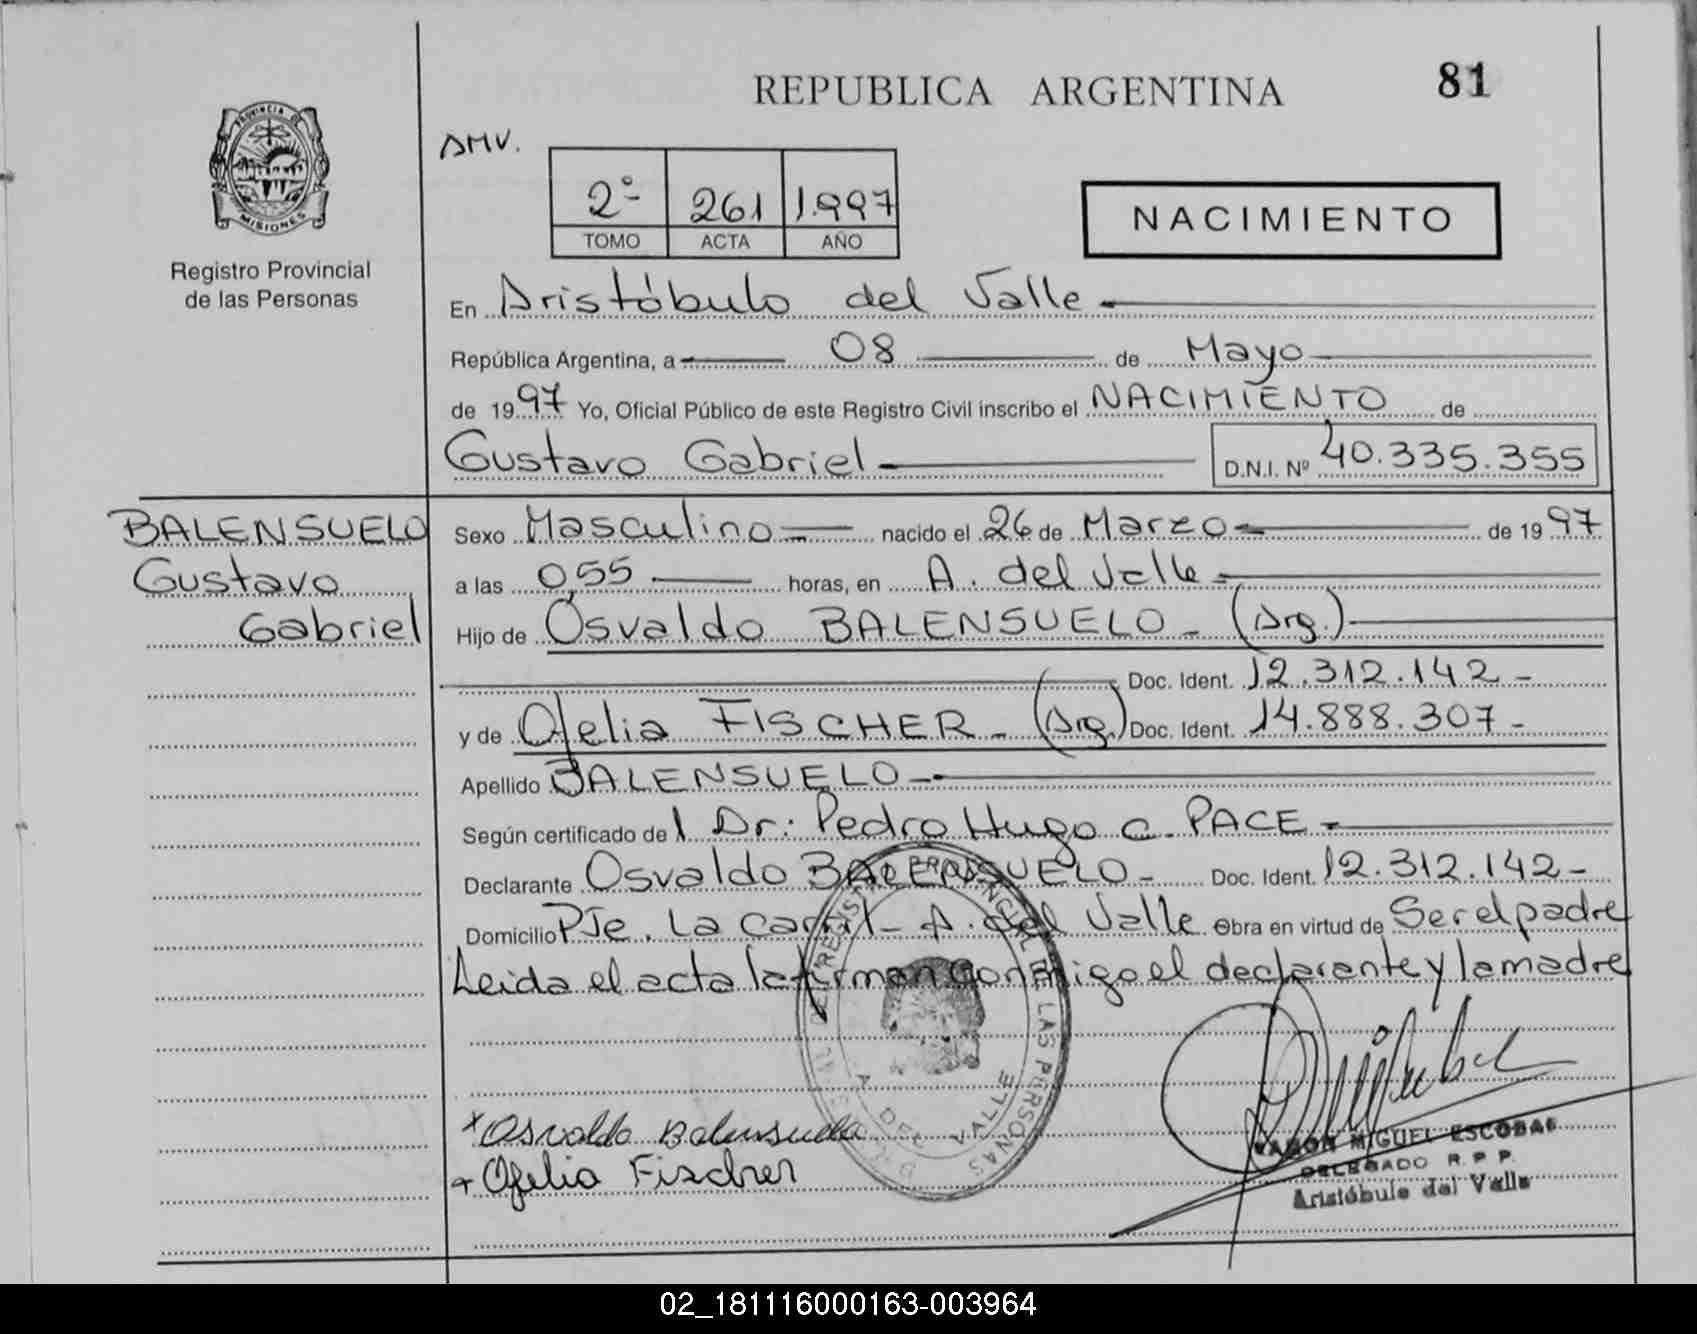 REPUBLICA ARGENTINA
81
PROVINCIA DE
MISIONES
Registro Provincial
de las Personas
AMV.
2º 261 1.997
TOMO ACTA AÑO
NACIMIENTO
En Aristóbulo del Valle
República Argentina, a 08 de Mayo
de 1997 Yo, Oficial Público de este Registro Civil inscribo el NACIMIENTO de
Gustavo Gabriel D.N.I. Nº 40.335.355
BALENSUELO
Gustavo
Gabriel
Sexo Masculino nacido el 26 de Marzo de 1997
a las 0,55 horas, en A. del Valle
Hijo de Osvaldo BALENSUELO - (Arg.)
Doc. Ident. 12.312.142 -
y de Ofelia FISCHER - (Arg.) Doc. Ident. 14.888.307 -
Apellido BALENSUELO -
Según certificado del Dr: Pedro Hugo C. PACE
Declarante Osvaldo BALENSUELO - Doc. Ident. 12.312.142 -
Domicilio PJe. La - A. del Valle Obra en virtud de Ser el padre
Leida el acta la firman conmigo el declarante y la madre
LAS PERSONAS
A DEL VALLE
x Osvaldo Balensuela
+ Ofelia Fischer
MIGUEL ESCOBAR
DELEGADO R. P. P.
Aristóbulo del Valle
02_181116000163-003964